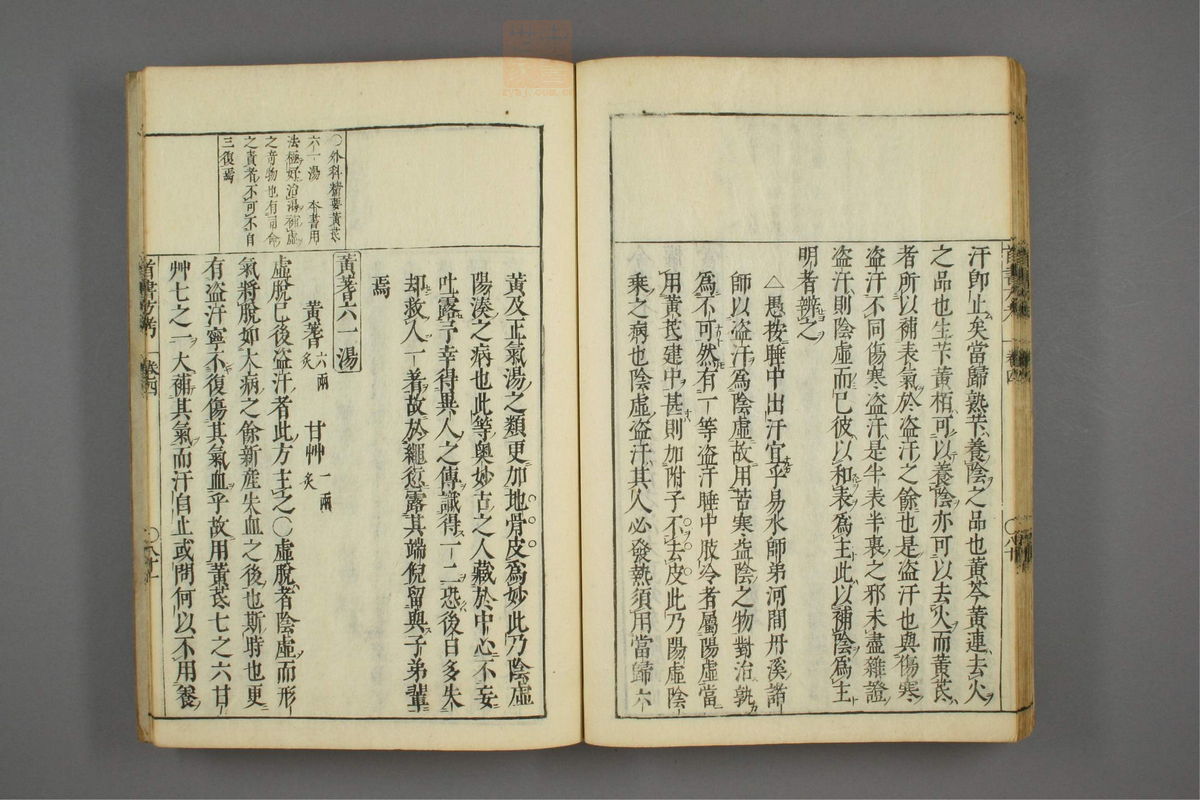 汗即止矣當歸熟芐養陰之品也黃芩黃連去火
之品也生芐黃栢可以養陰亦可以去火而黃芪
者所以補表氣於盜汗之餘也是盜汗也與傷寒
盜汗不同傷寒盜汗是半表半裏之邪未盡雜證
盜汗則陰虛而已彼以和表爲主此以補陰爲主
明者辨之
△愚按睡中出汗宜乎易水師弟河間丹溪諸
師以盜汗爲陰虛故用苦寒益陰之物對治孰
爲不可然有一等盜汗睡中肢冷者屬陽虛當
用黃芪建中甚則加附子不去皮此乃陽虛陰
乘之病也陰虛盜汗其人必發熱須用當歸六
黃及正氣湯之類更加地骨皮爲妙此乃陰虛
陽湊之病也此等奧妙古之人藏於中心不妄
吐露予幸得異人之傳識得一二恐後日多失
却救人一著故於繩愆露其端倪留與子弟輩
焉
〇外科精要黃芪
六一湯 本書用
法極好治渴補虛
之奇物也有司命
之責者不可不自
三復焉
黃蓍六一湯
黃蓍六兩炙 甘艸一兩炙
虛脫已後盜汗者此方主之〇虛脫者陰虛而形
氣將脫如大病之餘新産失血之後也斯時也更
有盜汗寧不復傷其氣血乎故用黃芪七之六甘
艸七之一大補其氣而汗自止或問何以不用養
卷四
卷四